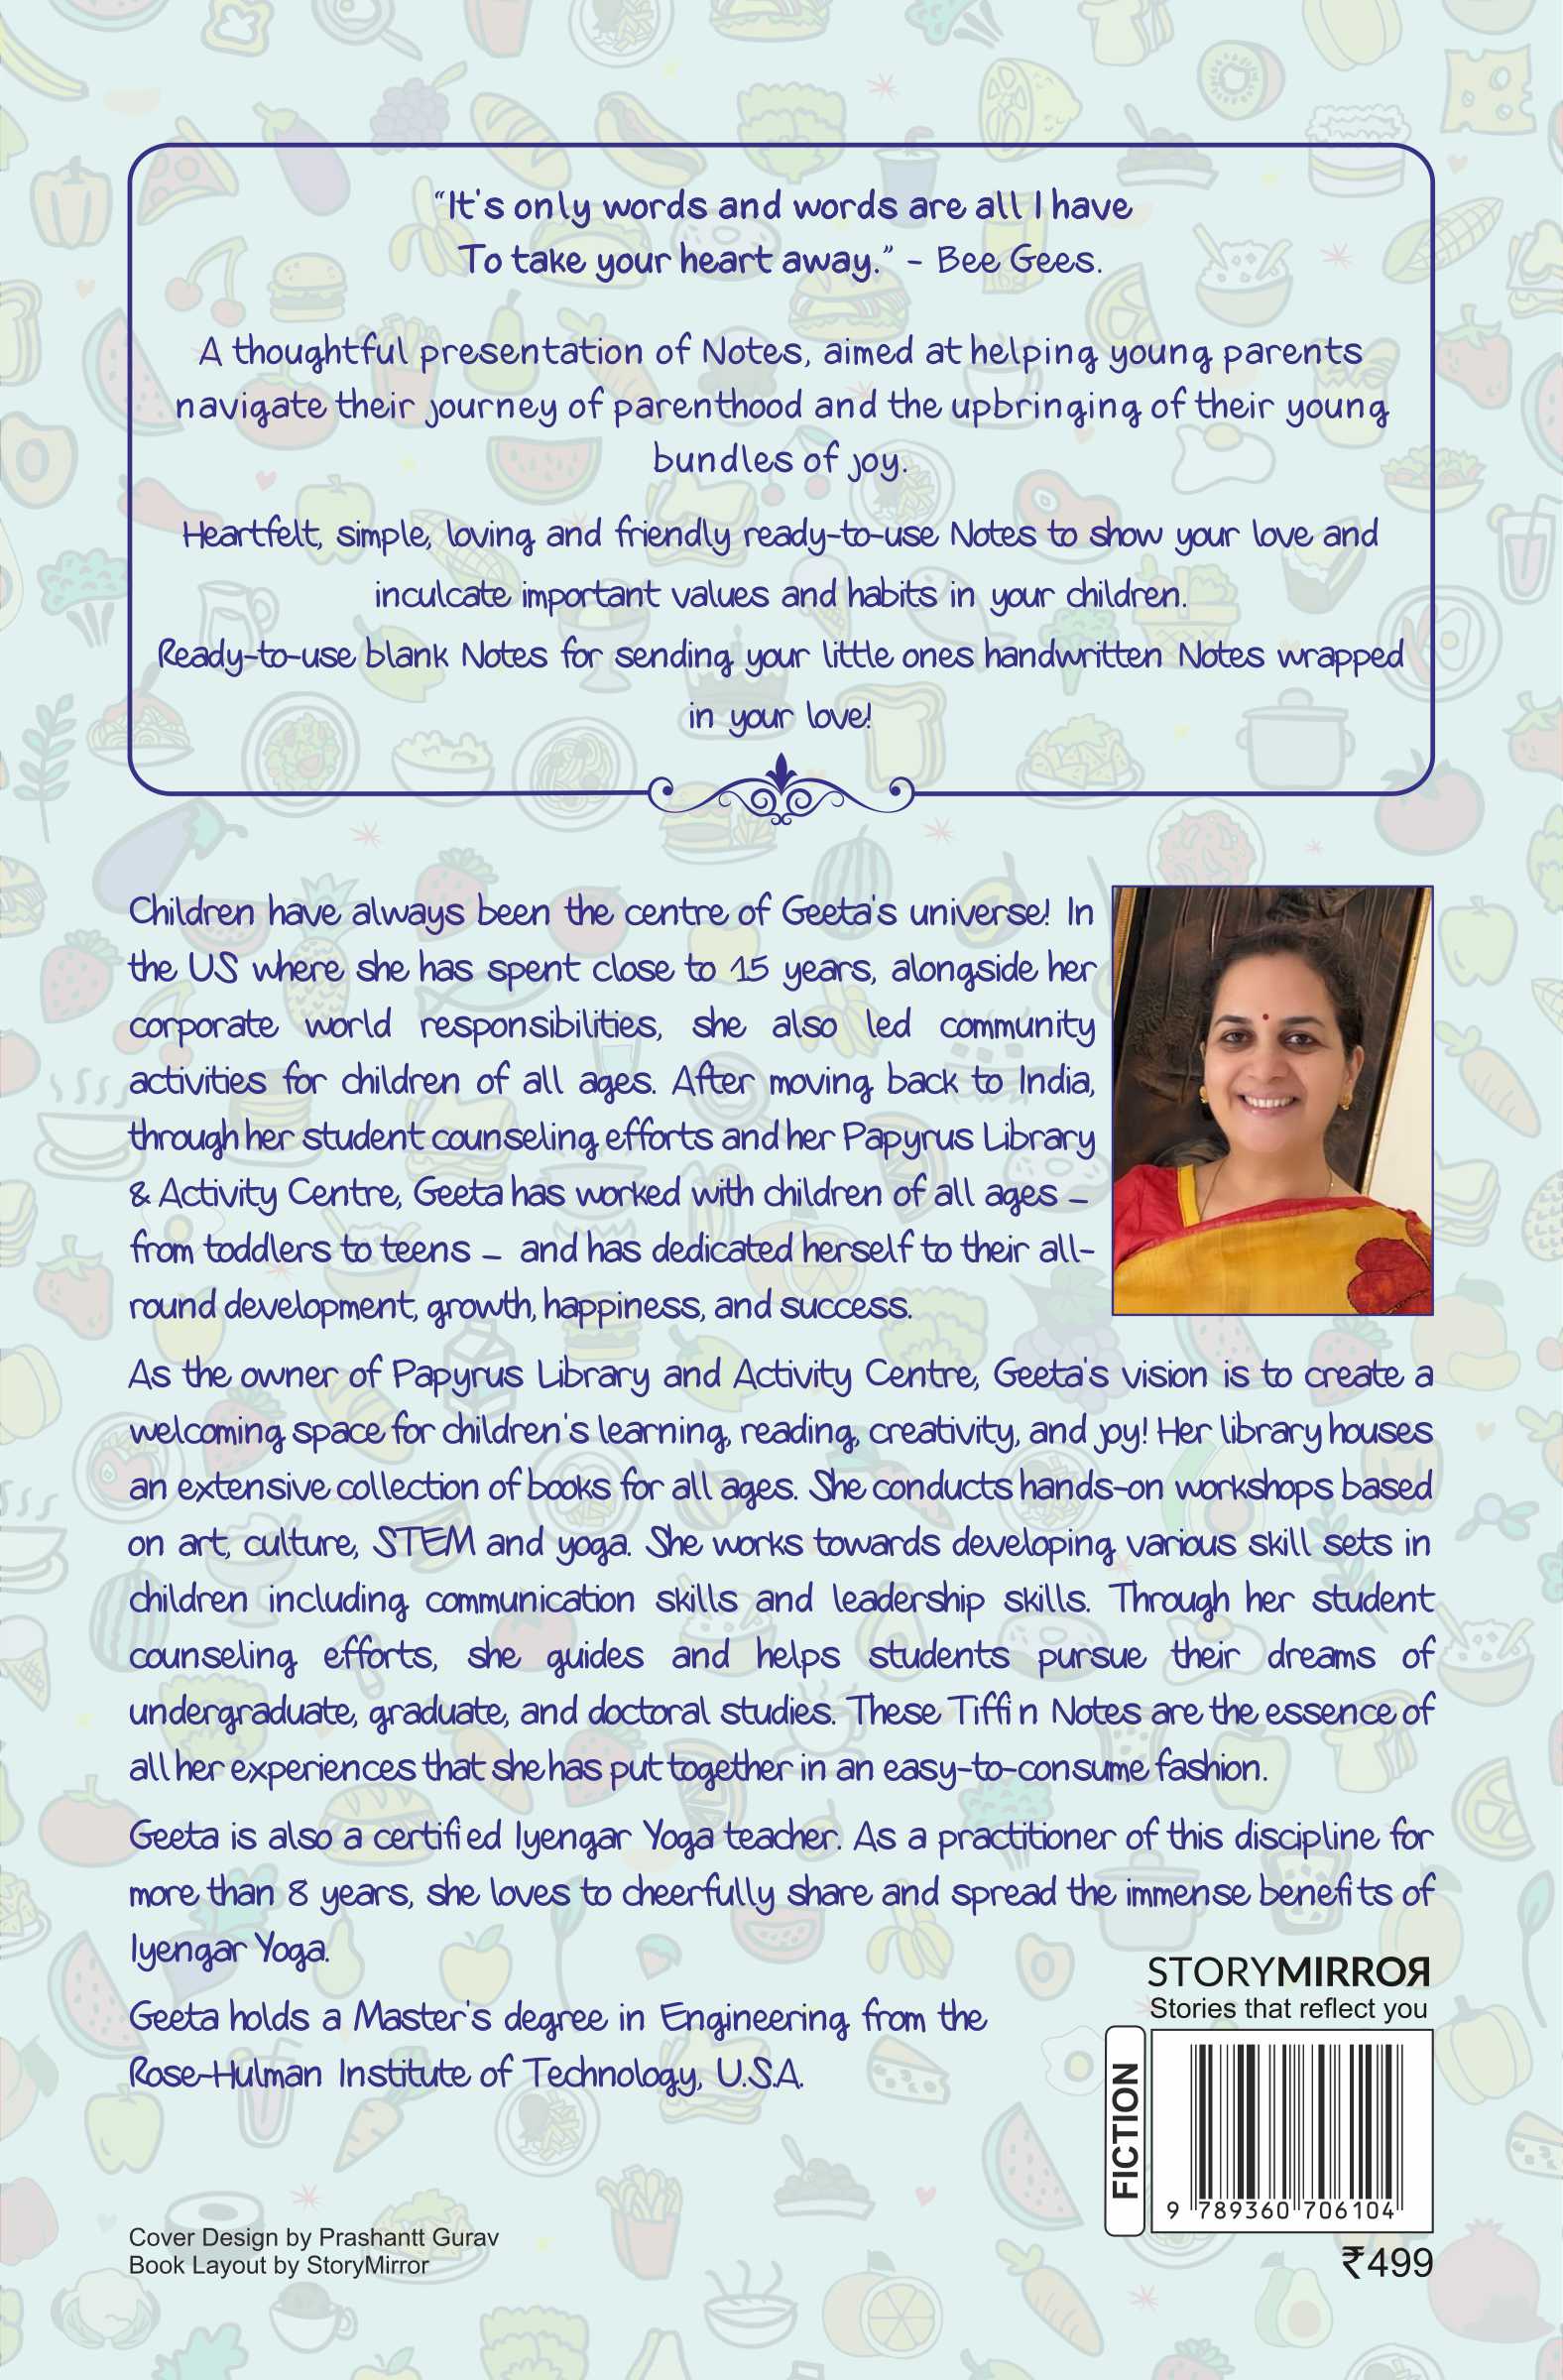 “It's only words and words are all I have
To take your heart away.” - Bee Gees.
A thoughtful presentation of Notes, aimed at helping young parents
navigate their journey of parenthood and the upbringing of their young
bundles of joy.
Heartfelt, simple, loving and friendly ready-to-use Notes to show your love and
inculcate important values and habits in your children.
Ready-to-use blank Notes for sending your little ones handwritten Notes wrapped
in your love!
Children have always been the centre of Geeta's universe! In
the US where she has spent close to 15 years, alongside her
corporate world responsibilities, she also led community
activities for children of all ages. After moving back to India,
through her student counseling efforts and her Papyrus Library
& Activity Centre, Geeta has worked with children of all ages –
from toddlers to teens – and has dedicated herself to their all-
round development, growth, happiness, and success.
As the owner of Papyrus Library and Activity Centre, Geeta's vision is to create a
welcoming space for children's learning, reading, creativity, and joy! Her library houses
an extensive collection of books for all ages. She conducts hands-on workshops based
on art, culture, STEM and yoga. She works towards developing various skill sets in
children including communication skills and leadership skills. Through her student
counseling efforts, she guides and helps students pursue their dreams of
undergraduate, graduate, and doctoral studies. These Tiffin Notes are the essence of
all her experiences that she has put together in an easy-to-consume fashion.
Geeta is also a certified Iyengar Yoga teacher. As a practitioner of this discipline for
more than 8 years, she loves to cheerfully share and spread the immense benefits of
Iyengar Yoga.
Geeta holds a Master's degree in Engineering from the
Rose-Hulman Institute of Technology, U.S.A.
STORYMIRROR
Stories that reflect you
FICTION
9 789360 706104
₹499
Cover Design by Prashantt Gurav
Book Layout by StoryMirror